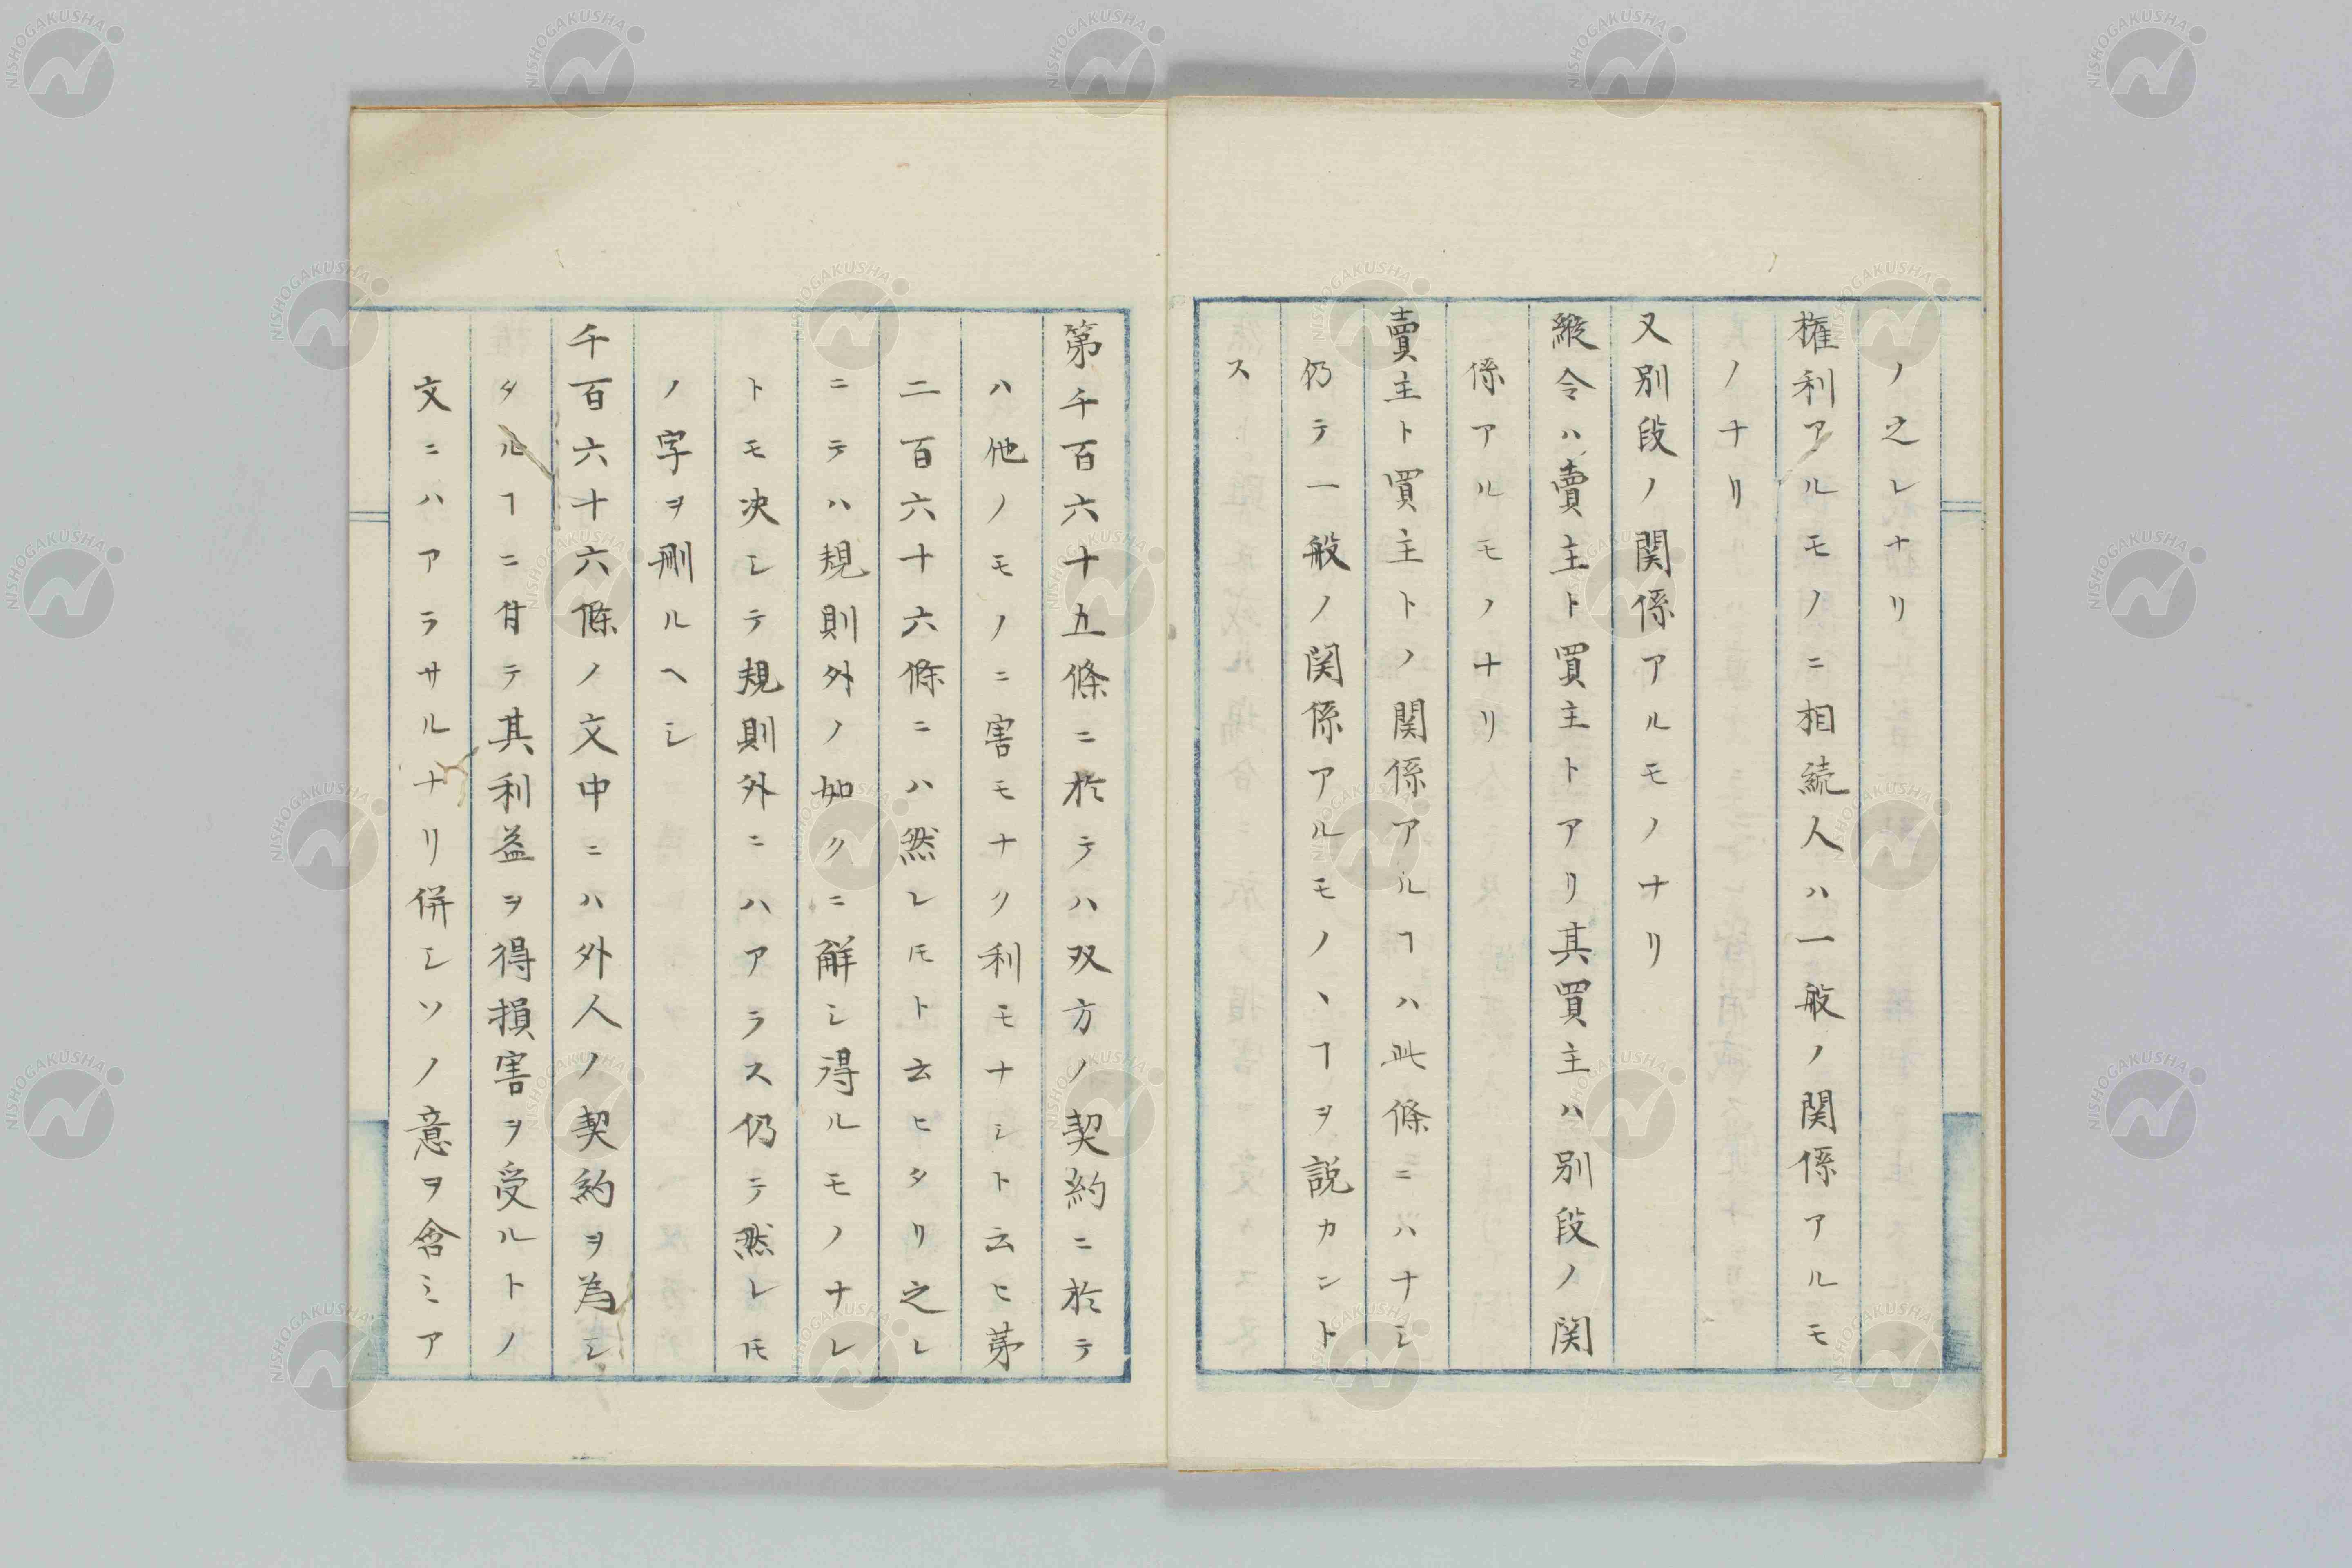 ノ之レナリ
権利アルモノニ相続人ハ一般ノ関係アルモ
ノナリ
又別段ノ関係アルモノナリ
縦令ハ賣主ト買主トアリ其買主ハ別段ノ関
係アルモノナリ
賣主ト買主トノ関係アルヿハ此條ニハナシ
仍テ一般ノ関係アルモノヽヿヲ説カント
ス
第千百六十五條ニ於テハ双方ノ契約ニ於テ
ハ他ノモノニ害モナク利モナシト云ヒ苐
二百六十六條ニハ然レ𪜈ト云ヒタリ之レ
ニテハ規則外ノ如クニ解シ得ルモノナレ
トモ决シテ規則外ニハアラス仍テ然レ𪜈
ノ字ヲ刪ルヘシ
千百六十六條ノ文中ニハ外人ノ契約ヲ為シ
タルヿニ付テ其利益ヲ得損害ヲ受ルトノ
文ニハアラサルナリ併シソノ意ヲ含ミア
NISHOGAKUSHA